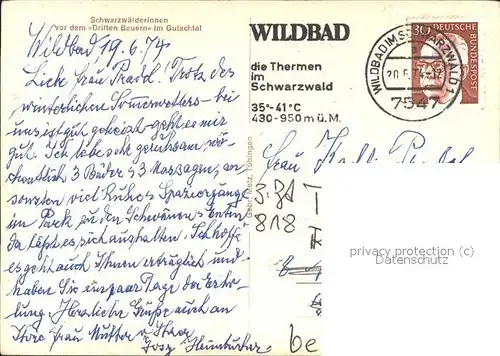 Schwarzwälderinnen
vor dem »Dritten Bauern« im Gutachtal
Wildbad 19.6.74
Liebe Frau Pradl! Trotz des
winterlichen Sommerwetters – bei
uns ist gut geheizt – geht es mir
gut. Ich habe sehr geruhsam wö-
chentlich 3 Bäder & 3 Massagen, an-
sonsten viel Ruhe & Spaziergänge
im Park zu den Schwänen & Enten.
Da läßt es sich aushalten. Ich hoffe
es geht auch Ihnen erträglich und
haben Sie ein paar Tage der Erho-
lung. Herzliche Grüße auch an
Ihre Frau Mutter
WILDBAD
die Thermen
im
Schwarzwald
35°-41°C
430-950 m ü. M.
WILDBAD IM SCHWARZWALD 1
20.6.74-12
7547
30
DEUTSCHE BUNDESPOST
Gebr. Metz, Tübingen
Frau
818
be
privacy protection ©
Datenschutz